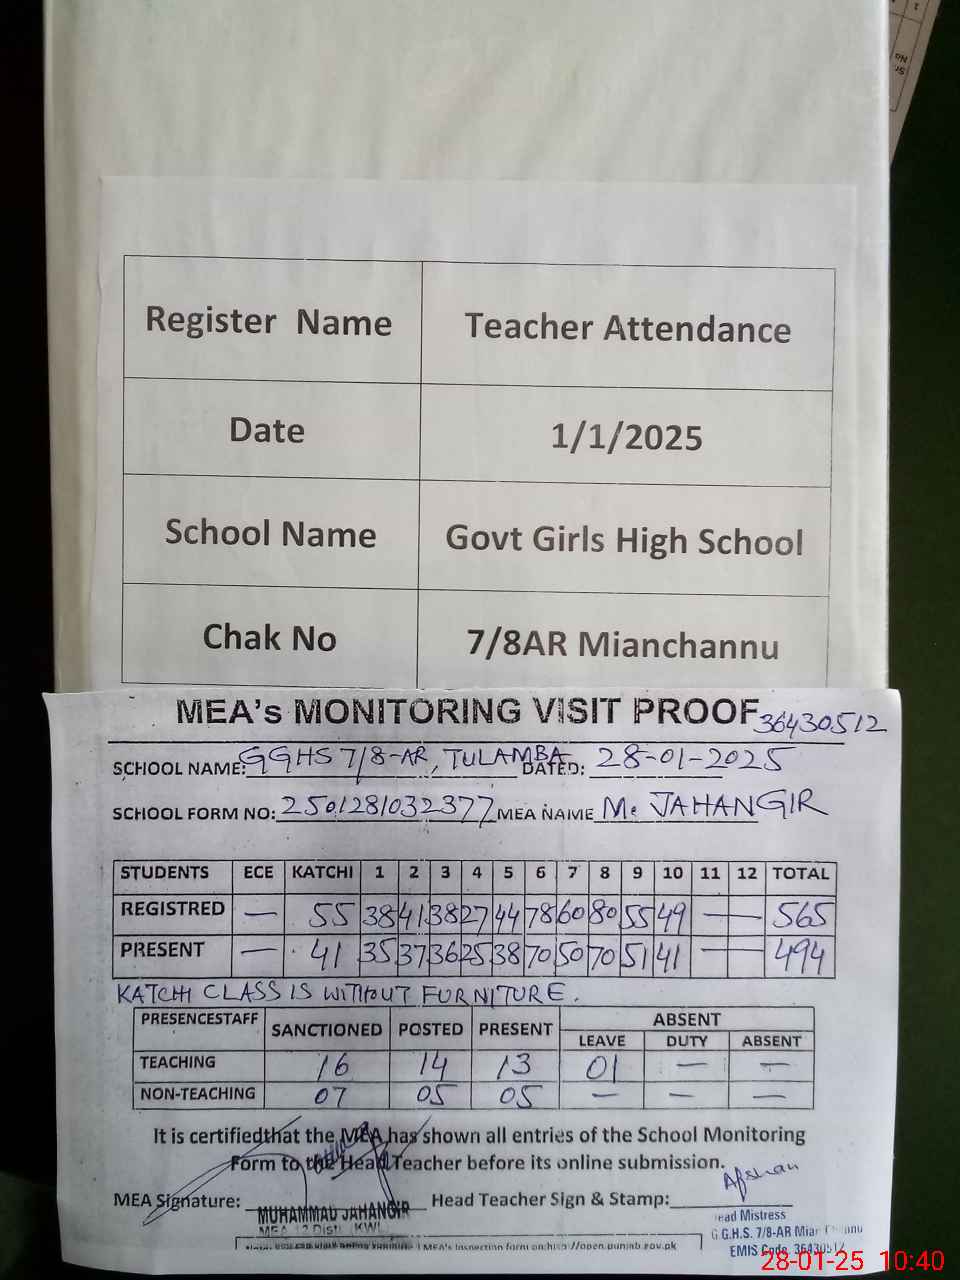 Sr. No
1
Register Name Teacher Attendance
Date 1/1/2025
School Name Govt Girls High School
Chak No 7/8AR Mianchannu
MEA's MONITORING VISIT PROOF 36430512
SCHOOL NAME: GGHS 7/8-AR, TULAMBA DATED: 28-01-2025
SCHOOL FORM NO: 2501281032377 MEA NAME M. JAHANGIR
STUDENTS ECE KATCHI 1 2 3 4 5 6 7 8 9 10 11 12 TOTAL
REGISTRED — 55 38 41 38 27 44 78 60 80 55 49 — 565
PRESENT — 41 35 37 36 25 38 70 50 70 51 41 — 494
KATCHI CLASS IS WITHOUT FURNITURE.
PRESENCESTAFF SANCTIONED POSTED PRESENT ABSENT
LEAVE DUTY ABSENT
TEACHING 16 14 13 01 — —
NON-TEACHING 07 05 05 — — —
It is certifiedthat the MEA has shown all entries of the School Monitoring
Form to the Head Teacher before its online submission.
MEA Signature: Head Teacher Sign & Stamp:
Afshan
MUHAMMAD JAHANGIR
MEA 12 Distt. KWL
ead Mistress
G.G.H.S. 7/8-AR Mian Channu
EMIS Code 36430512
MEA's Inspection form on: http://open.punjab.gov.pk
28-01-25 10:40